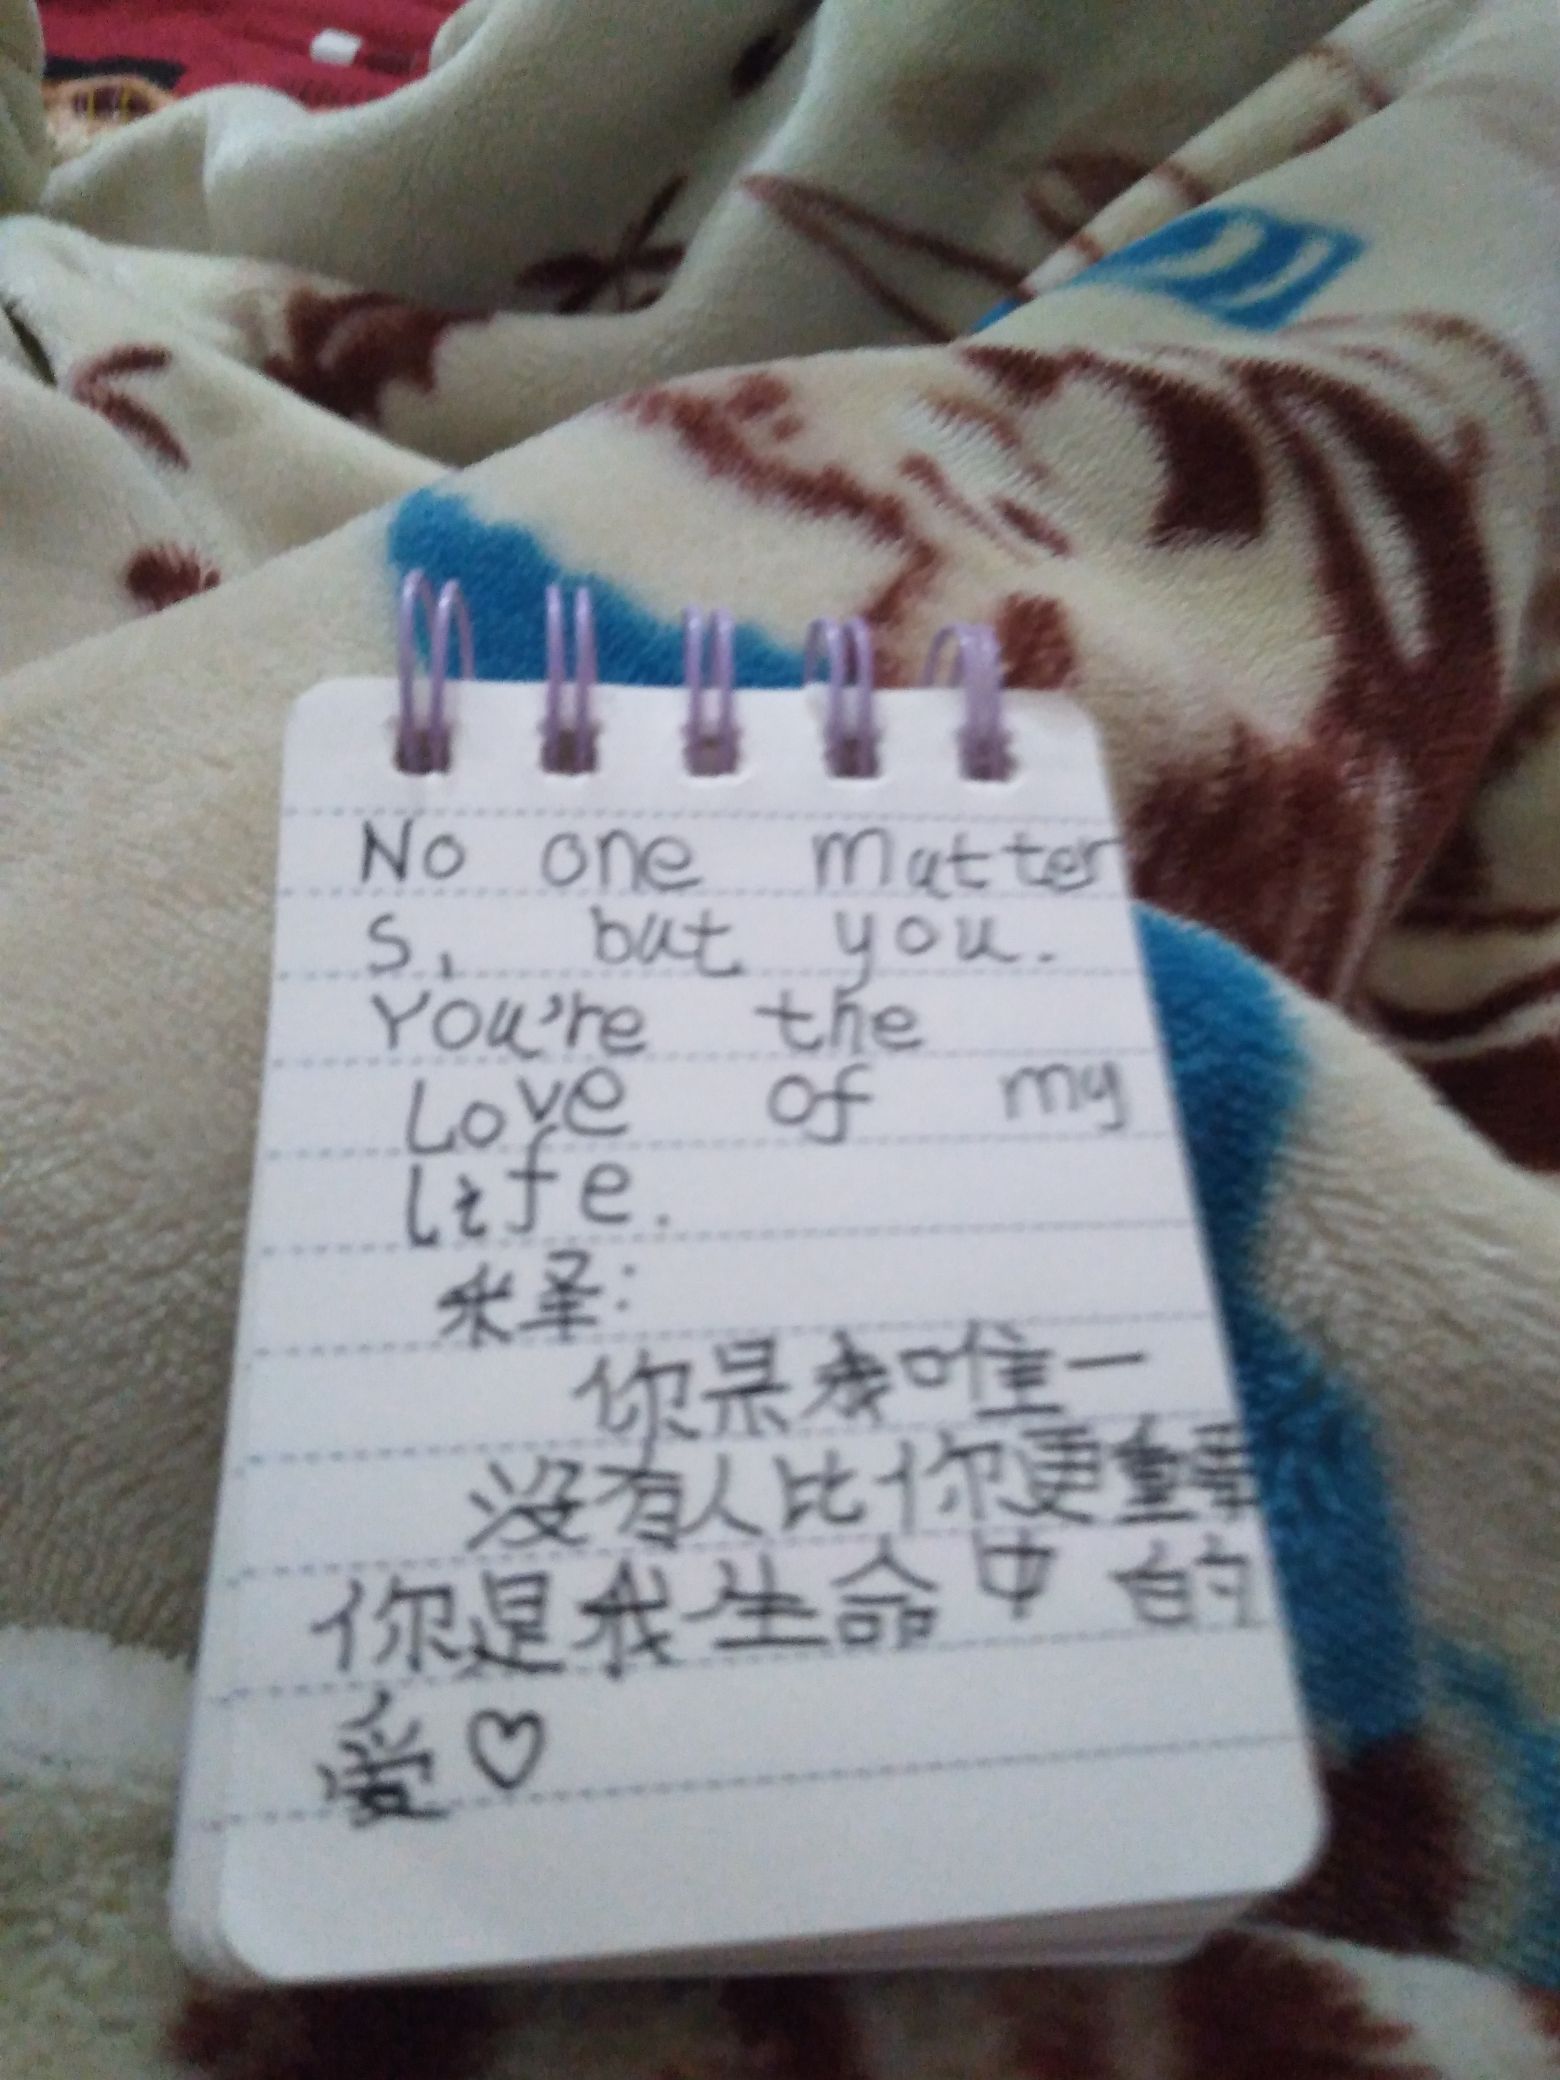 No one matter
s, but you.
You're the
Love of my
life.
米泽:
你是我唯一
没有人比你更重要
你是我生命中的
爱♡